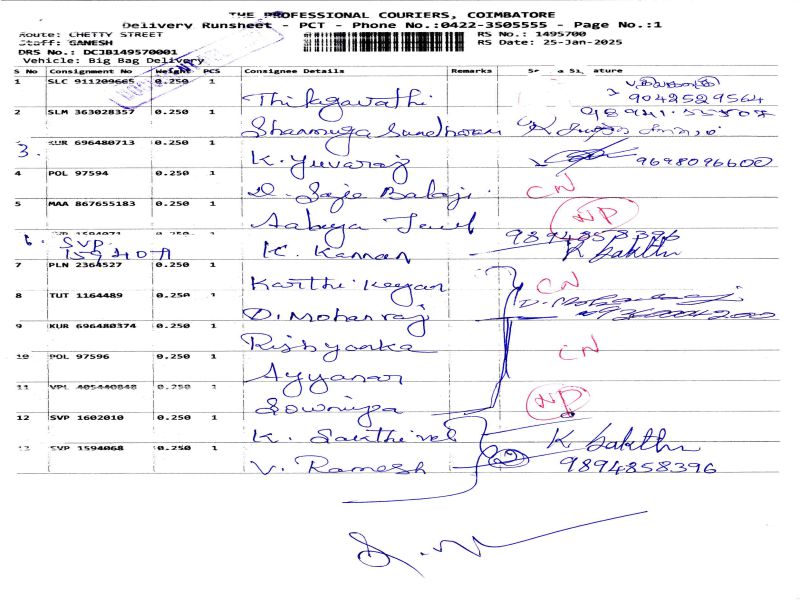 THE PROFESSIONAL COURIERS, COIMBATORE
Delivery Runsheet - PCT - Phone No.:0422-3505555 - Page No.:1
Route: CHETTY STREET RS No.: 1495700
Staff: GANESH RS Date: 25-Jan-2025
DRS No.: DCJB149570001
Vehicle: Big Bag Delivery
S No Consignment No Weight PCS Consignee Details Remarks
1 SLC 911209665 0.250 1 Thilagavathi 9042529564
2 SLM 363028357 0.250 1 Shanmuga Sundharam
3. KUR 696480713 0.250 1 K. Yuvaraj 9698096600
4 POL 97594 0.250 1 Balaji CN
5 MAA 867655183 0.250 1 NP
6. SVP 1594071 K. Kannan 9894858396 K Sakthi
7 PLN 2364527 0.250 1 Karthikeyan CN
8 TUT 1164489 0.250 1 D. Mohanraj D. Mohanraj
9 KUR 696480374 0.250 1
10 POL 97596 0.250 1 Ayyanar CN
11 VPL 405440848 0.250 1 Sowmiya NP
12 SVP 1602010 0.250 1 K. Sakthivel K Sakthi
13 SVP 1594068 0.250 1 V. Ramesh 9894858396